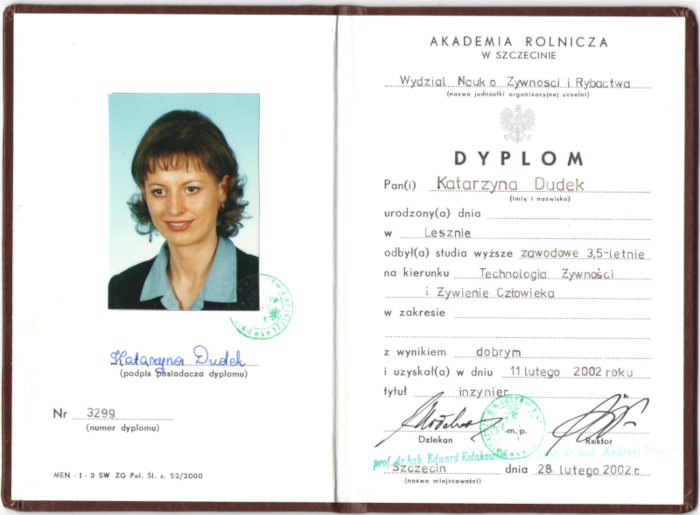 Katarzyna Dudek
(podpis posiadacza dyplomu)
Nr 3299
(numer dyplomu)
MEN - I - 3 SW ZG Pol. Śl. z. 52/2000
AKADEMIA ROLNICZA
W SZCZECINIE
Wydział Nauk o Żywności i Rybactwa
(nazwa jednostki organizacyjnej uczelni)
DYPLOM
Pan(i) Katarzyna Dudek
(imię i nazwisko)
urodzony(a) dnia
w Lesznie
odbył(a) studia wyższe zawodowe 3,5-letnie
na kierunku Technologia Żywności
i Żywienie Człowieka
w zakresie
z wynikiem dobrym
i uzyskał(a) w dniu 11 lutego 2002 roku
tytuł inżynier
Dziekan m.p. Rektor
prof. dr hab. Edward Kołakowski
prof. dr hab. Andrzej
Szczecin dnia 28 lutego 2002 r.
(nazwa miejscowości)